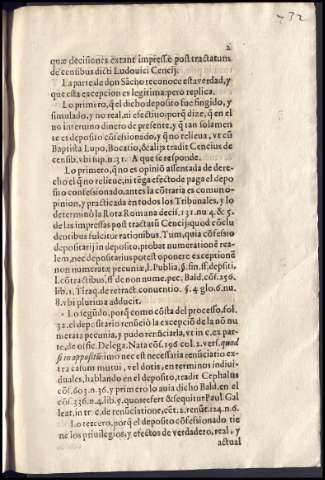 732
2
quæ decisiones extant impressæ post tractatum
de censibus dicti Ludouici Cencij.
La parte de don Sãcho reconoce esta verdad, y
que esta excepcion es legitima: pero replica.
Lo primero, q̃ el dicho deposito fue fingido, y
simulado, y no real, ni efectiuo: porq̃ dize, q̃ en el
no interuino dinero de presente, y q̃ tan solamen
te es deposito cõfessionado, y q̃ no relieua, vt cũ
Baptista Lupo, Bocatio, & alijs tradit Cencius de
censib. vbi sup. n. 31. A que se responde.
Lo primero, q̃ no es opiniõ assentada de dere-
cho el q̃ no relieue, ni tẽga efecto de paga el depo
sito confessionado, antes la cõtraria es comun o-
pinion, y practicada en todos los Tribunales, y lo
determinò la Rota Romana decis. 131. nu. 4. & 5.
de las impressas post tractatũ Cencij: quod cõclu
dentibus fulcitur rationibus. Tum, quia cõfessio
depositarij in deposito, probat numerationẽ rea-
lem, nec depositarius potest opponere exceptionẽ
non numeratæ pecuniæ, l. Publia, §. fin. ff. depositi,
l. contractibus, ff. de non nume. pec. Bald. cõs. 356.
lib. 1. Tiraq. de retract. conuentio. §. 4. glo. 6. nu.
8. vbi plurima adducit.
Lo segũdo, porq̃ como cõsta del processo, fol.
32. el depositario renũciò la excepciõ de la nõ nu
merata pecunia, y pudo renũciarla, vt in c. ex par-
te, de offic. Delega. Nata cõs. 196. col. 2. vers. quod
si in appositio: imo nec est necessaria renũciatio ex-
tra casum mutui, vel dotis, en terminos indiui-
duales, hablando en el deposito, tradit Cephalus
cõs. 603. n. 36. y primero lo auia dicho Bald. en el
cõs. 336. n. 4. lib. 5. quo refert & sequitur Paul Gal
leat. in tr c. de renũciatione, cẽt. 2. renũt. 124. n. 6.
Lo tercero, porq̃ el deposito cõfessionado tie
ne los priuilegios, y efectos de verdadero, real, y
actual